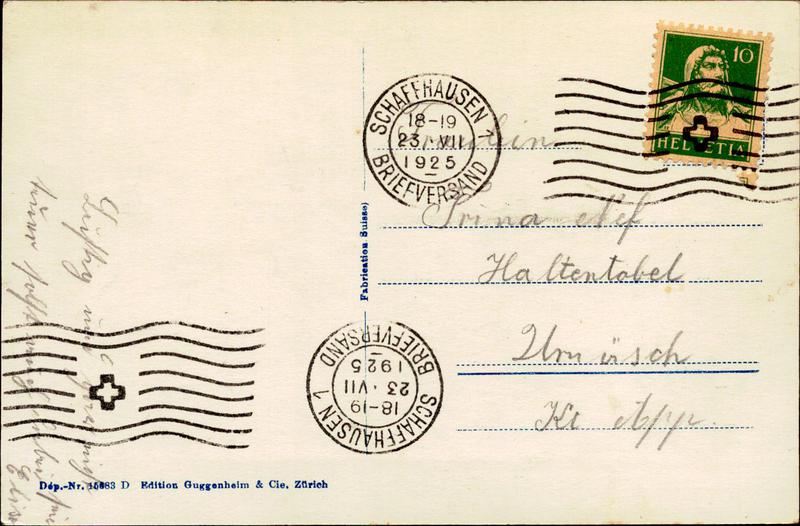 10
HELVETIA
SCHAFFHAUSEN 1
18-19
23. VII
1925
BRIEFVERSAND
Fräulein
Prina Nef
Haltentobel
Urnäsch
Kt App.
Fabrication Suisse
SCHAFFHAUSEN 1
18-19
23. VII
1925
BRIEFVERSAND
Dép.-Nr. 15683 D Edition Guggenheim & Cie, Zürich